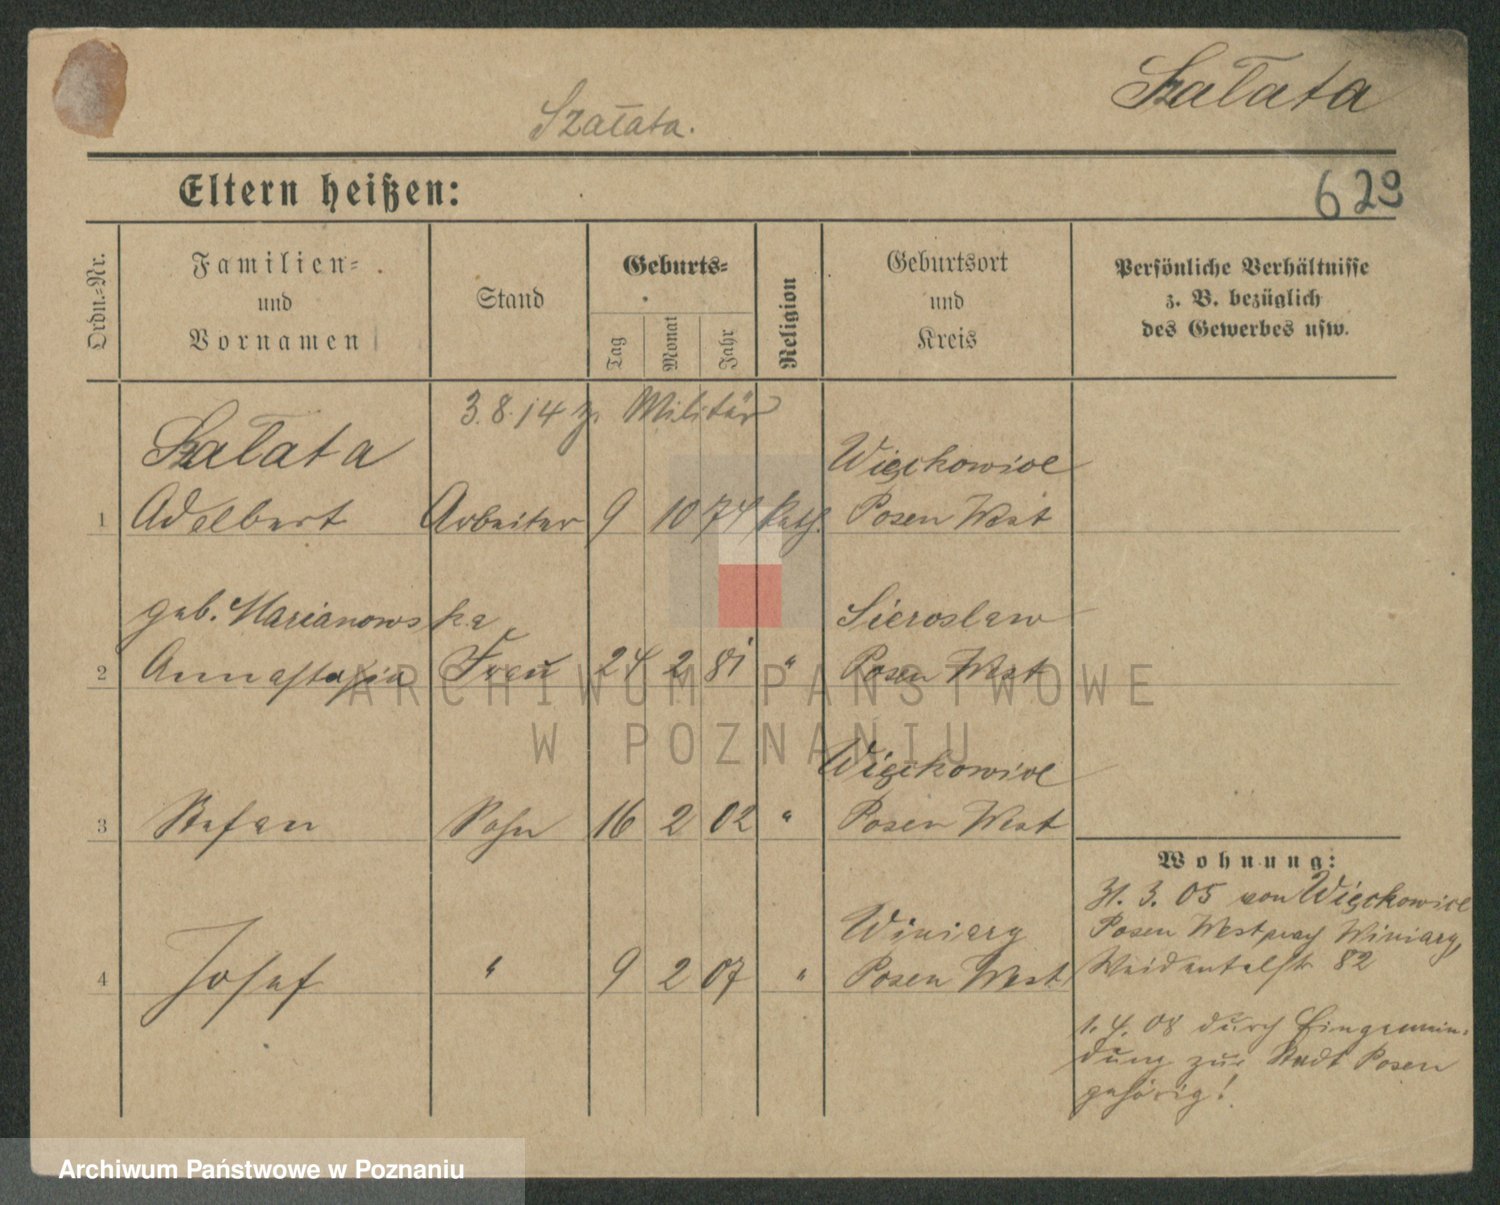 Szałata
Szałata.
Eltern heißen:
629
Ordn.-Nr.
Familien-
und
Vornamen
Stand
Geburts-
Tag
Monat
Jahr
Religion
Geburtsort
und
Kreis
Persönliche Verhältnisse
z. B. bezüglich
des Gewerbes usw.
3.8.14 z. Militär
Szałata Więckowice
1 Adalbert Arbeiter 9 10 74 kath. Posen West
geb. Marianowska Sieroslaw
2 Annastasia Frau 24 2 81 " Posen West
Więckowice
3 Stefan Sohn 16 2 02 " Posen West
Wohnung:
31. 3. 05 von Więckowice
Posen West nach Winiary,
Weidentalstr 82
Winiary
4 Josef " 9 2 07 " Posen West
1. 4. 08 durch Eingemein-
dung zur Stadt Posen
gehörig!
ARCHIWUM PAŃSTWOWE
W POZNANIU
Archiwum Państwowe w Poznaniu